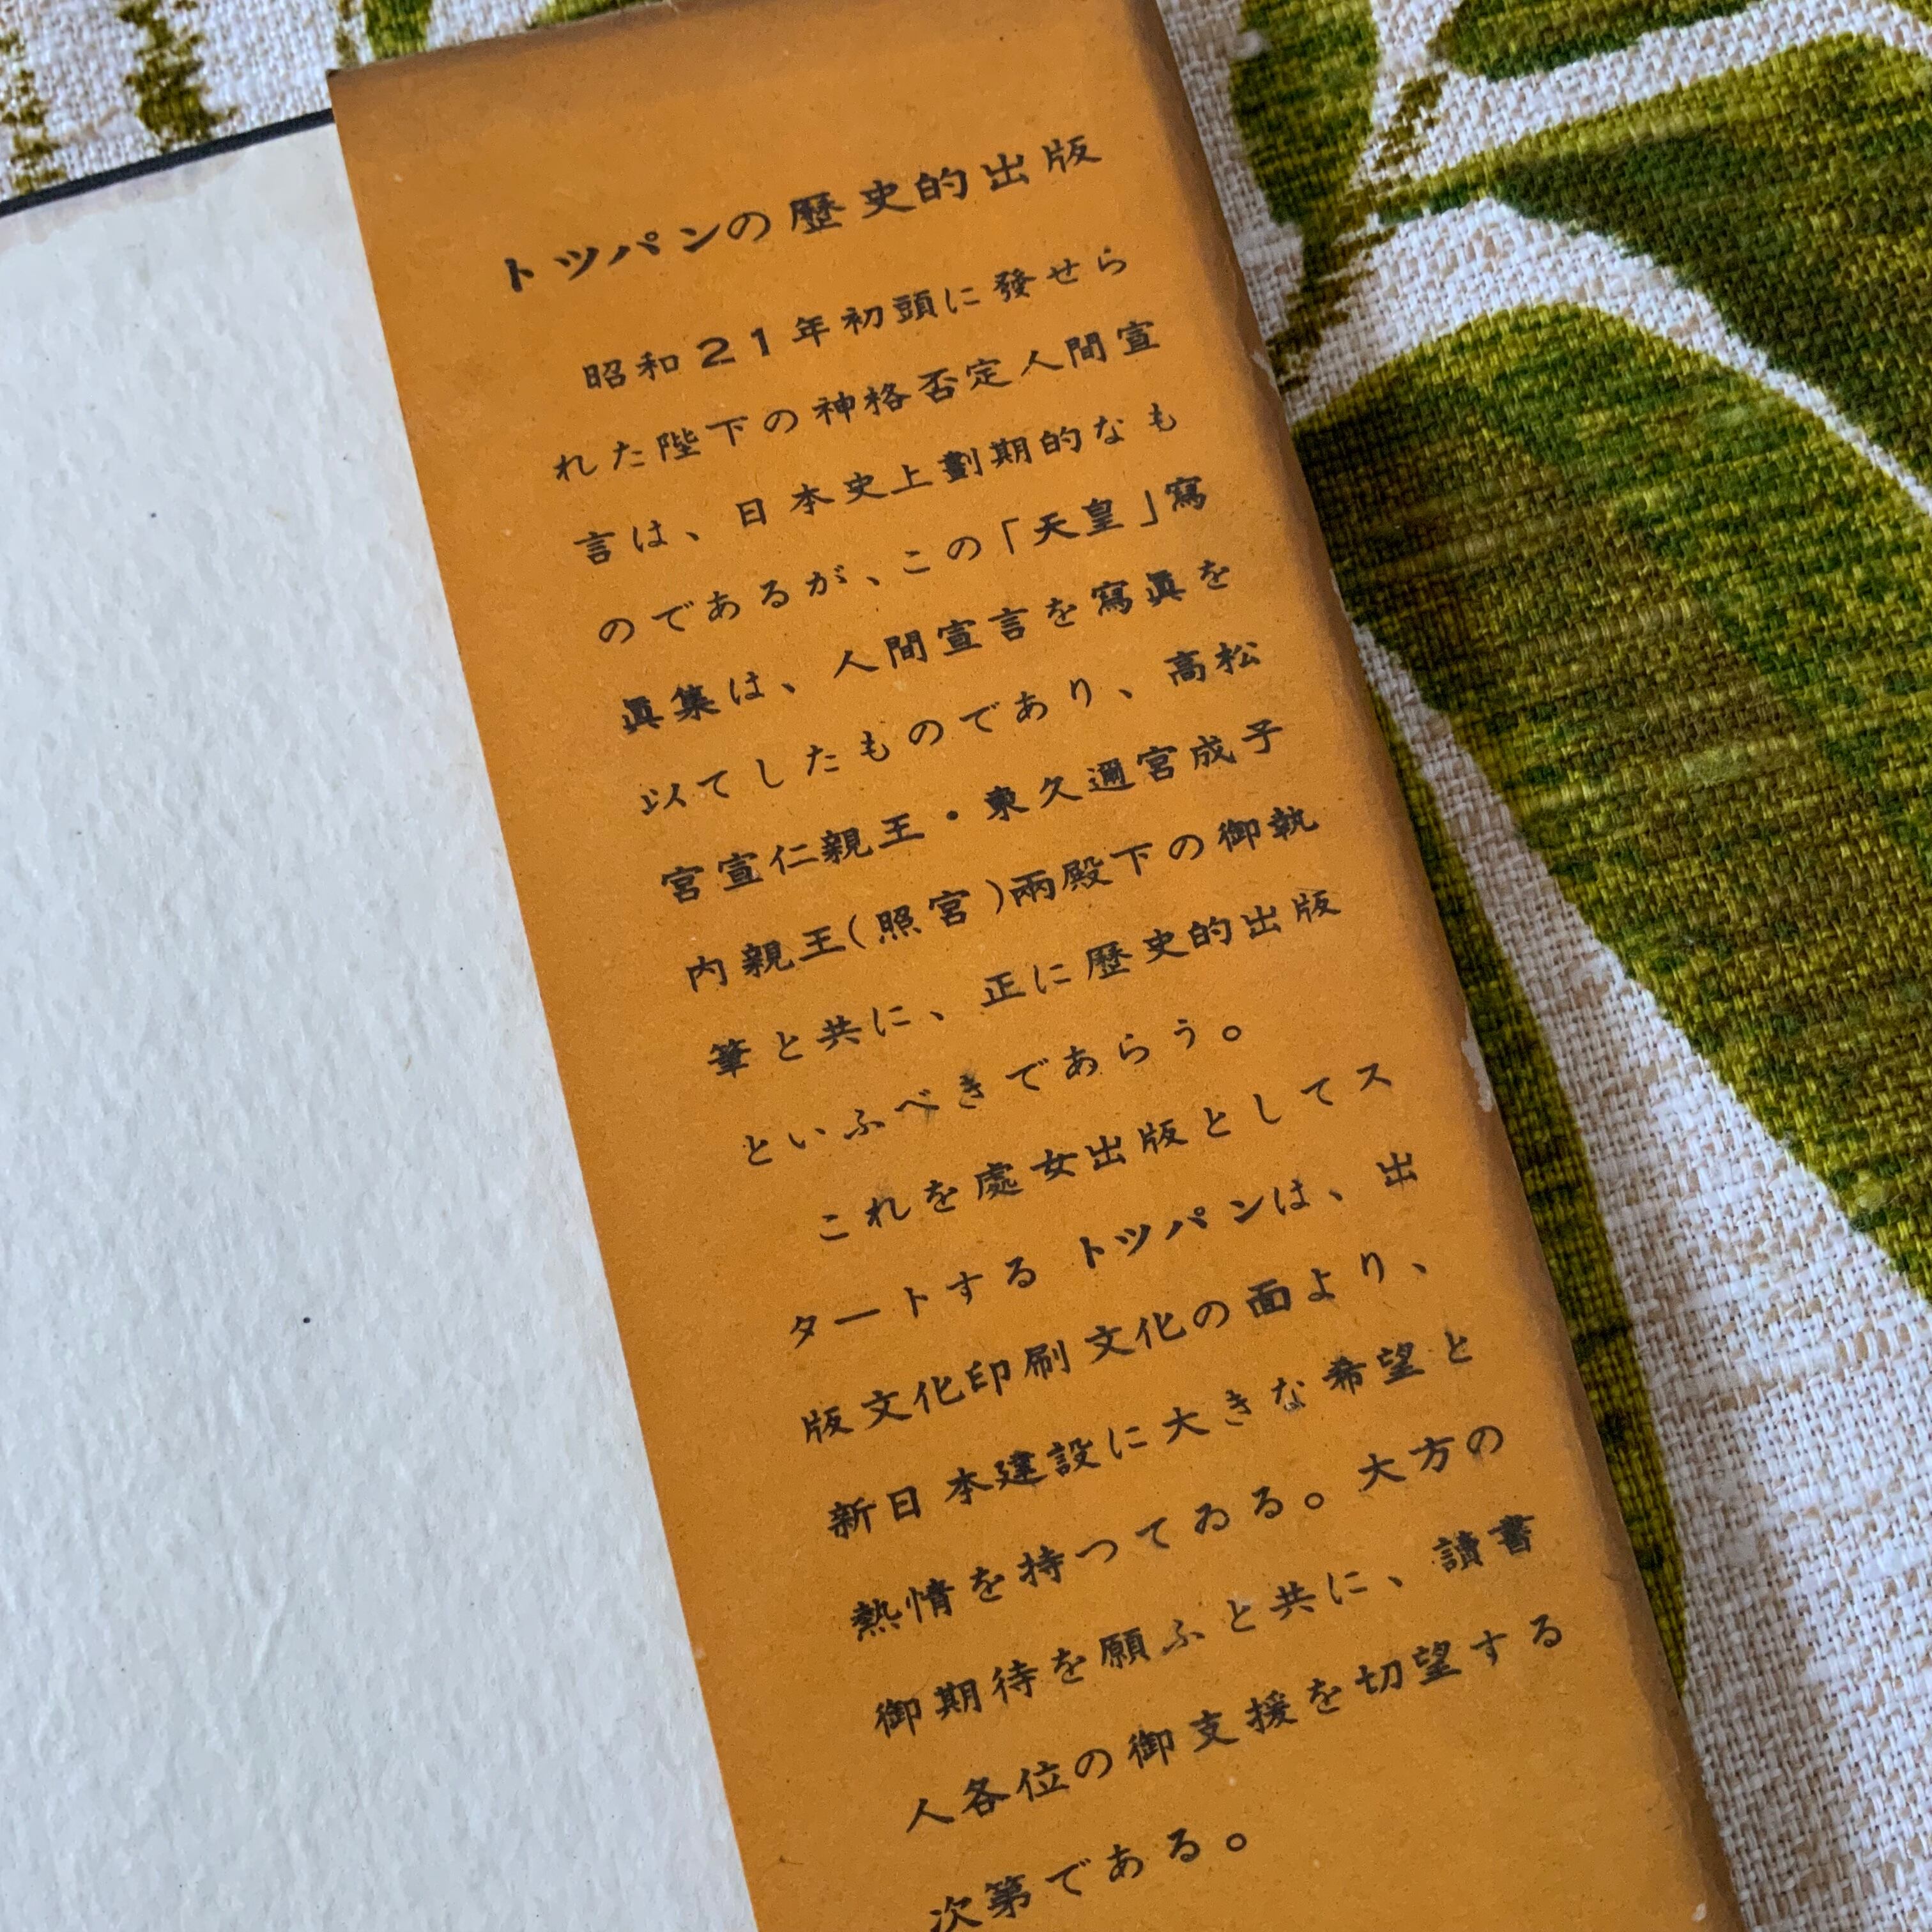 トツパンの歷史的出版
昭和21年初頭に發せら
れた陛下の神格否定人間宣
言は、日本史上劃期的なも
のであるが、この「天皇」寫
眞集は、人間宣言を寫眞を
以てしたものであり、高松
宮宣仁親王・東久邇宮成子
内親王(照宮)兩殿下の御執
筆と共に、正に歷史的出版
といふべきであらう。
これを處女出版としてス
タートする トツパンは、出
版文化印刷文化の面より、
新日本建設に大きな希望と
熱情を持つてゐる。大方の
御期待を願ふと共に、讀書
人各位の御支援を切望する
次第である。